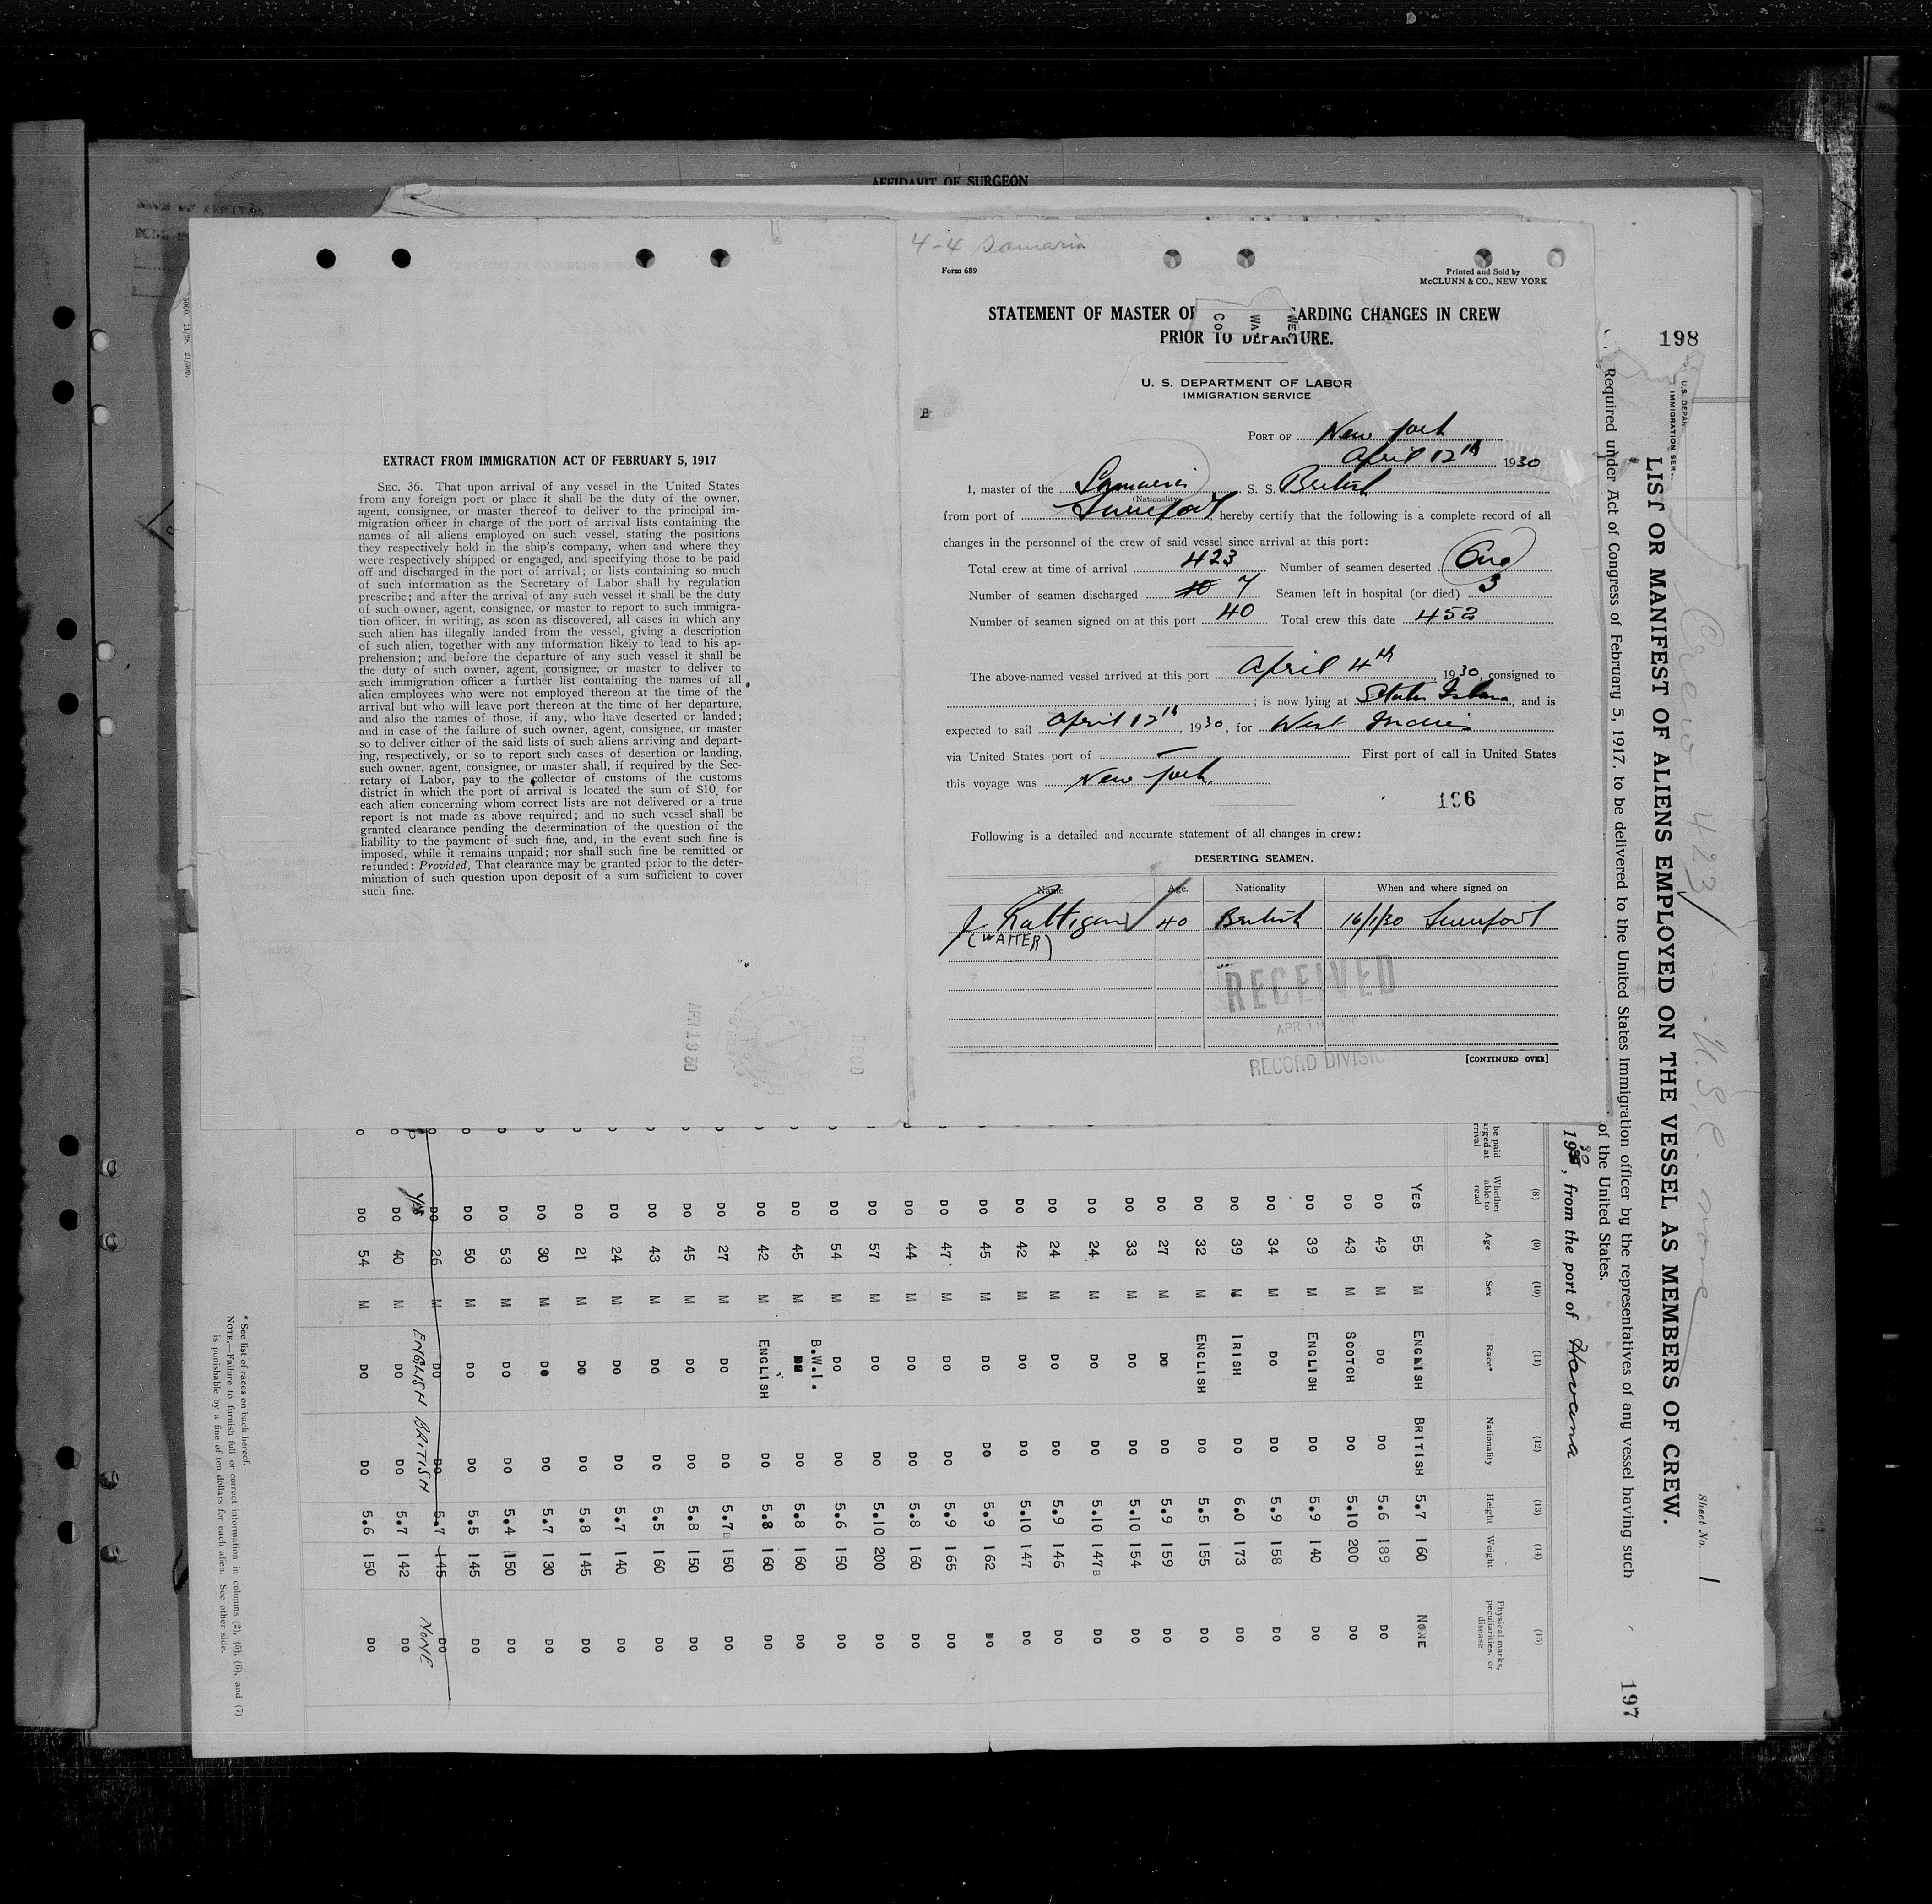 AFFIDAVIT OF SURGEON
5000. 11/28. 21/309.
EXTRACT FROM IMMIGRATION ACT OF FEBRUARY 5, 1917
SEC. 36. That upon arrival of any vessel in the United States
from any foreign port or place it shall be the duty of the owner,
agent, consignee, or master thereof to deliver to the principal im-
migration officer in charge of the port of arrival lists containing the
names of all aliens employed on such vessel, stating the positions
they respectively hold in the ship's company, when and where they
were respectively shipped or engaged, and specifying those to be paid
off and discharged in the port of arrival; or lists containing so much
of such information as the Secretary of Labor shall by regulation
prescribe; and after the arrival of any such vessel it shall be the duty
of such owner, agent, consignee, or master to report to such immigra-
tion officer, in writing, as soon as discovered, all cases in which any
such alien has illegally landed from the vessel, giving a description
of such alien, together with any information likely to lead to his ap-
prehension; and before the departure of any such vessel it shall be
the duty of such owner, agent, consignee, or master to deliver to
such immigration officer a further list containing the names of all
alien employees who were not employed thereon at the time of the
arrival but who will leave port thereon at the time of her departure,
and also the names of those, if any, who have deserted or landed;
and in case of the failure of such owner, agent, consignee, or master
so to deliver either of the said lists of such aliens arriving and depart-
ing, respectively, or so to report such cases of desertion or landing,
such owner, agent, consignee, or master shall, if required by the Sec-
retary of Labor, pay to the collector of customs of the customs
district in which the port of arrival is located the sum of $10 for
each alien concerning whom correct lists are not delivered or a true
report is not made as above required; and no such vessel shall be
granted clearance pending the determination of the question of the
liability to the payment of such fine, and, in the event such fine is
imposed, while it remains unpaid; nor shall such fine be remitted or
refunded: Provided, That clearance may be granted prior to the deter-
mination of such question upon deposit of a sum sufficient to cover
such fine.
APR 19 30
4-4 Samaria
Form 689
Printed and Sold by
McCLUNN & CO., NEW YORK
STATEMENT OF MASTER OF ARDING CHANGES IN CREW
PRIOR TO DEPARTURE.
Co
WA
WES
U. S. DEPARTMENT OF LABOR
IMMIGRATION SERVICE
PORT OF New York
April 12th 1930
I, master of the Samaria S. S. British
(Nationality)
from port of Liverpool, hereby certify that the following is a complete record of all
changes in the personnel of the crew of said vessel since arrival at this port:
Total crew at time of arrival 423 Number of seamen deserted One
Number of seamen discharged 7 Seamen left in hospital (or died) 3
Number of seamen signed on at this port 40 Total crew this date 452
The above-named vessel arrived at this port April 4th 1930, consigned to
; is now lying at Staten Island, and is
expected to sail April 12th, 1930, for West Indies
via United States port of — First port of call in United States
this voyage was New York
196
Following is a detailed and accurate statement of all changes in crew:
DESERTING SEAMEN.
Name Age. Nationality When and where signed on
J. Rattigan 40 British 16/1/30 Liverpool
(WAITER)
RECEIVED
APR 19 1930
RECORD DIVISION
[CONTINUED OVER]
198
U.S. DEPAR
IMMIGRATION SER
Crew 423
U.S.C. none
Sheet No. 1
LIST OR MANIFEST OF ALIENS EMPLOYED ON THE VESSEL AS MEMBERS OF CREW.
Required under Act of Congress of February 5, 1917, to be delivered to the United States immigration officer by the representatives of any vessel having such
of the United States.
197
1930, from the port of Havana
(8) (9) (10) (11) (12) (13) (14) (15)
be paid
arged at
rrival
Whether able to read Age Sex Race* Nationality Height Weight Physical marks, peculiarities, or disease
YES 55 M ENGLISH BRITISH 5.7 160 NONE
DO 49 M DO DO 5.6 189 DO
DO 43 M SCOTCH DO 5.10 200 DO
DO 39 M ENGLISH DO 5.9 140 DO
DO 34 M DO DO 5.9 158 DO
DO 39 M IRISH DO 6.0 173 DO
DO 32 M ENGLISH DO 5.5 155 DO
DO 27 M DO DO 5.9 159 DO
DO 33 M DO DO 5.10 154 DO
DO 24 M DO DO 5.10 147 DO
DO 24 M DO DO 5.9 146 DO
DO 42 M DO DO 5.10 147 DO
DO 45 M DO DO 5.9 162 DO
DO 47 M DO DO 5.9 165 DO
DO 44 M DO DO 5.8 160 DO
DO 57 M DO DO 5.10 200 DO
DO 54 M DO DO 5.6 150 DO
DO 45 M B.W.I. DO 5.8 160 DO
DO 42 M ENGLISH DO 5.8 160 DO
DO 27 M DO DO 5.7 150 DO
DO 45 M DO DO 5.8 150 DO
DO 43 M DO DO 5.5 160 DO
DO 24 M DO DO 5.7 140 DO
DO 21 M DO DO 5.8 145 DO
DO 30 M DO DO 5.7 130 DO
DO 53 M DO DO 5.4 150 DO
DO 50 M DO DO 5.5 145 DO
DO 26 M DO DO 5.7 145 DO
YES ENGLISH BRITISH NONE
DO 40 M DO DO 5.7 142 DO
DO 54 M DO DO 5.6 150 DO
* See list of races on back hereof.
NOTE.—Failure to furnish full or correct information in columns (2), (5), (6), and (7)
is punishable by a fine of ten dollars for each alien. See other side.